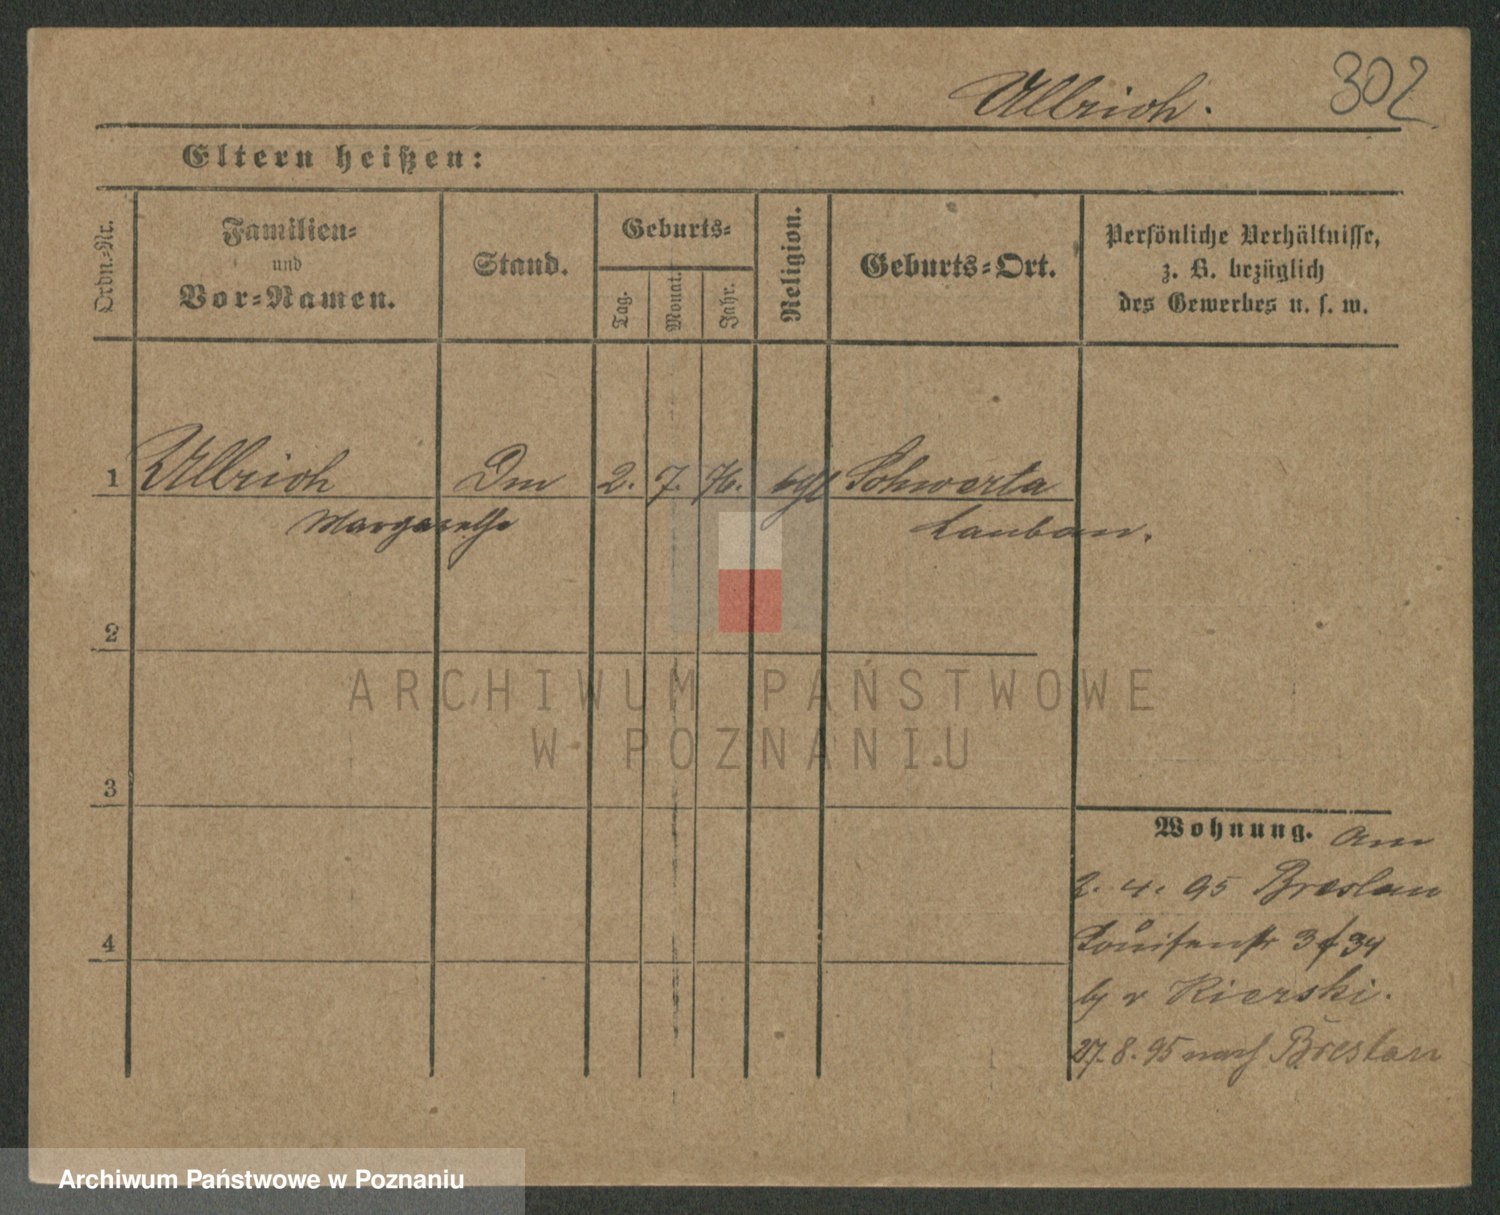 Ullrich. 302
Eltern heißen:
Ordn.-Nr.
Familien-
und
Vor-Namen.
Stand.
Geburts-
Tag.
Monat.
Jahr.
Religion.
Geburts-Ort.
Persönliche Verhältnisse,
z. B. bezüglich
des Gewerbes u. s. w.
1 Ullrich 2. 7. 76. Schwerta
Margarethe Lauban.
2
ARCHIWUM PAŃSTWOWE
W POZNANIU
3
Wohnung. am
2. 4. 95 Breslau
4
Louisenstr 34
v Kierski.
27. 8. 95 nach Breslau
Archiwum Państwowe w Poznaniu